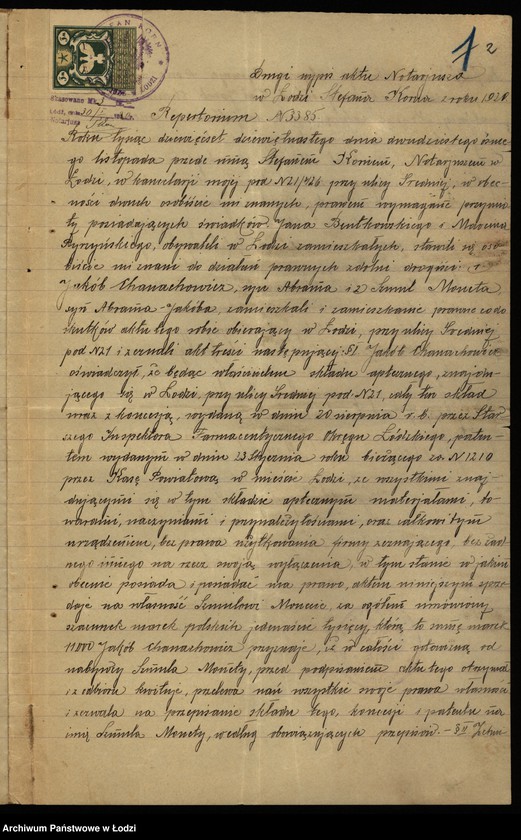 1 2
Drugi wypis aktu Notarjusza
w Łodzi Stefana Korna z roku 1920.
Repertorium N 3385
Roku tysiąc dziewięćset dziewiętnastego dnia dwudziestego
go listopada przede mną Stefanem Kornem, Notarjuszem w
Łodzi, w kancelarji mojej pod N 21/426 przy ulicy Średniej, w obec-
ności dwóch osobiście mi znanych, prawem wymagane przymio-
ty posiadających świadków Jana Bentkowskiego i Marcina
Ryrzyńskiego, obywateli w Łodzi zamieszkałych, stawili się oso-
biście mi znani do działań prawnych zdolni
Jakób Chanachowicz, syn Abrama i 2 Szmul Moneta
syn Abrama-Jakóba, zamieszkali i zamieszkanie prawne co do
skutków aktu tego robić obierający w Łodzi, przy ulicy Średniej
pod N 21 i zeznali akt treści następującej: §1 Jakób Chanachowicz
oświadczył, że będąc właścicielem składu aptecznego, znajdu-
jącego się w Łodzi, przy ulicy Średniej pod N 21, cały ten skład
wraz z koncesją, wydaną w dniu 20 sierpnia r. b. przez Star-
szego Inspektora Farmaceutycznego Okręgu Łódzkiego, paten-
tem wydanym w dniu 23 Stycznia roku bieżącego za N 1210
przez Kasę Powiatową w mieście Łodzi, ze wszystkimi znaj-
dującymi się w tym składzie aptecznym materjałami, to-
warami, naczyniami i przynależytościami, oraz całkowitym
urządzeniem, bez prawa użytkowania firmy zeznającego, bez żad-
nego innego na rzecz swoją wyłączenia, w tym stanie w jakim
obecnie posiada i posiadać ma prawo, aktem niniejszym sprze-
daje na własność Szmulowi Monecie, za ogólny umówiony
szacunek marek polskich jedenaście tysięcy, którą to sumę marek
11000 Jakób Chanachowicz przyznaje, iż w całości gotowizną od
nabywcy Szmula Monety, przed podpisaniem aktu tego otrzymał
i z odbioru kwituje, przelewa nań wszystkie swoje prawa własności
i zezwala na przepisanie składu tego, koncesji i patentu na
imię Szmula Monety, według obowiązujących przepisów. -
Archiwum Państwowe w Łodzi